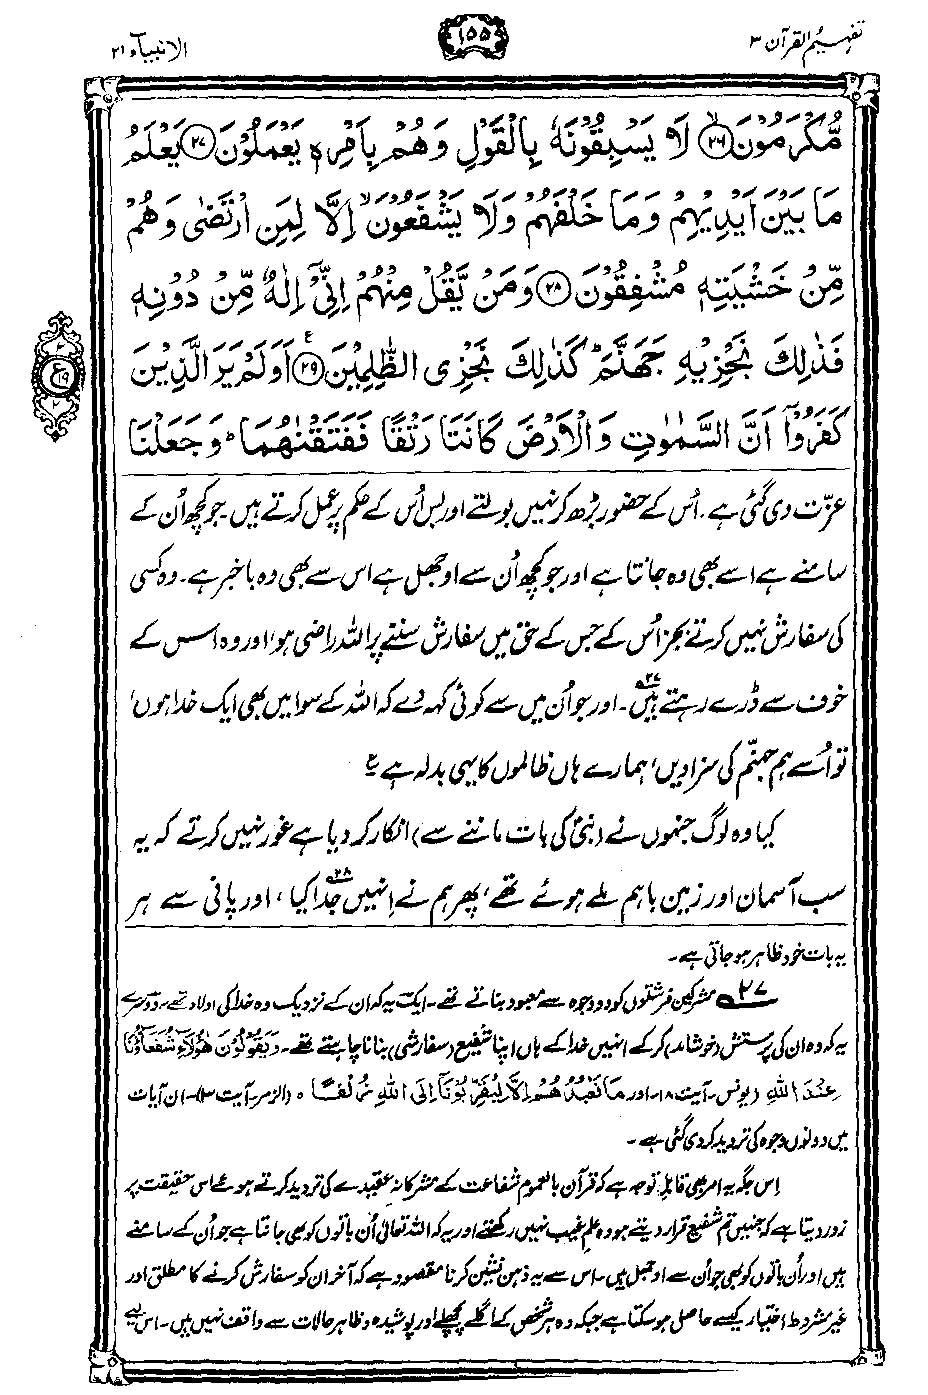 تفہیم القرآن ۳
۱۵۵
الانبیاء ۲۱
مُّكْرَمُوْنَ ﴿۲۶﴾ لَا يَسْبِقُوْنَهٗ بِالْقَوْلِ وَهُمْ بِاَمْرِهٖ يَعْمَلُوْنَ ﴿۲۷﴾ يَعْلَمُ
مَا بَيْنَ اَيْدِيْهِمْ وَمَا خَلْفَهُمْ وَلَا يَشْفَعُوْنَ ۙ اِلَّا لِمَنِ ارْتَضٰى وَهُمْ
مِّنْ خَشْيَتِهٖ مُشْفِقُوْنَ ﴿۲۸﴾ وَمَنْ يَّقُلْ مِنْهُمْ اِنِّىْۤ اِلٰهٌ مِّنْ دُوْنِهٖ
فَذٰلِكَ نَجْزِيْهِ جَهَنَّمَ ؕ كَذٰلِكَ نَجْزِى الظّٰلِمِيْنَ ﴿۲۹﴾ ع اَوَلَمْ يَرَ الَّذِيْنَ
كَفَرُوْۤا اَنَّ السَّمٰوٰتِ وَالْاَرْضَ كَانَتَا رَتْقًا فَفَتَقْنٰهُمَا ؕ وَجَعَلْنَا
۲ ع ۱۹ ۲
عزّت دی گئی ہے۔ اُس کے حضور بڑھ کر نہیں بولتے اور بس اُس کے حکم پر عمل کرتے ہیں۔ جو کچھ اُن کے
سامنے ہے اسے بھی وہ جانتا ہے اور جو کچھ اُن سے اوجھل ہے اس سے بھی وہ باخبر ہے۔ وہ کسی
کی سفارش نہیں کرتے بجز اُس کے جس کے حق میں سفارش سننے پر اللہ راضی ہو، اور وہ اس کے
خوف سے ڈرے رہتے ہیں۲۷۔ اور جو اُن میں سے کوئی کہہ دے کہ اللہ کے سوا میں بھی ایک خدا ہوں،
تو اُسے ہم جہنّم کی سزا دیں، ہمارے ہاں ظالموں کا یہی بدلہ ہے ع
کیا وہ لوگ جنہوں نے (نبیؐ کی بات ماننے سے) انکار کر دیا ہے غور نہیں کرتے کہ یہ
سب آسمان اور زمین باہم ملے ہوئے تھے، پھر ہم نے اِنہیں جُدا کیا۲۸، اور پانی سے ہر
یہ بات خود ظاہر ہو جاتی ہے۔
۲۷ مشرکین فرشتوں کو دو وجوہ سے معبود بناتے تھے۔ ایک یہ کہ ان کے نزدیک وہ خدا کی اولاد تھے۔ دوسرے
یہ کہ وہ ان کی پرستش (خوشامد) کر کے انہیں خدا کے ہاں اپنا شفیع (سفارشی) بنانا چاہتے تھے۔ وَيَقُوْلُوْنَ هٰۤؤُلَآءِ شُفَعَآؤُنَا
عِنْدَ اللّٰهِ (یونس۔ آیت ۱۸)۔ اور مَا نَعْبُدُهُمْ اِلَّا لِيُقَرِّبُوْنَاۤ اِلَى اللّٰهِ زُلْفٰى ۝ (الزمر۔ آیت ۳)۔ ان آیات
میں دونوں وجوہ کی تردید کر دی گئی ہے۔
اِس جگہ یہ امر بھی قابلِ توجہ ہے کہ قرآن بالعموم شفاعت کے مشرکانہ عقیدے کی تردید کرتے ہوئے اس حقیقت پر
زور دیتا ہے کہ جنہیں تم شفیع قرار دیتے ہو وہ علمِ غیب نہیں رکھتے اور یہ کہ اللہ تعالیٰ اُن باتوں کو بھی جانتا ہے جو اُن کے سامنے
ہیں اور اُن باتوں کو بھی جو اُن سے اوجھل ہیں۔ اس سے یہ ذہن نشین کرنا مقصود ہے کہ آخر ان کو سفارش کرنے کا مطلق اور
غیر مشروط اختیار کیسے حاصل ہو سکتا ہے جبکہ وہ ہر شخص کے اگلے پچھلے اور پوشیدہ و ظاہر حالات سے واقف نہیں ہیں۔ اس لیے